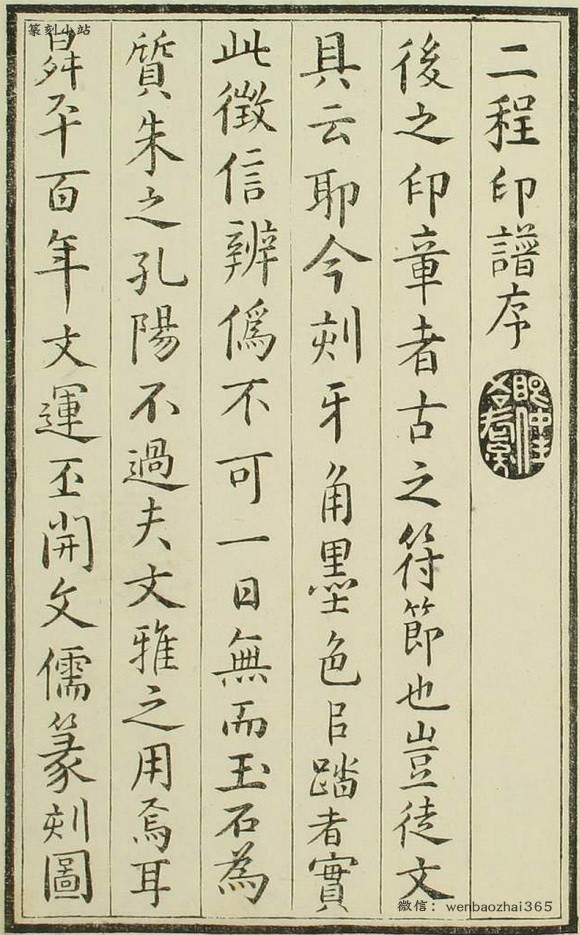 篆刻小站
二程印譜序
後之印章者古之符節也豈徒文
具云耶今刻牙角墨色㠯踏者實
此徵信辨僞不可一日無而玉石為
質朱之孔陽不過夫文雅之用焉耳
平百年文運丕開文儒篆刻圖
微信：wenbaozhai365